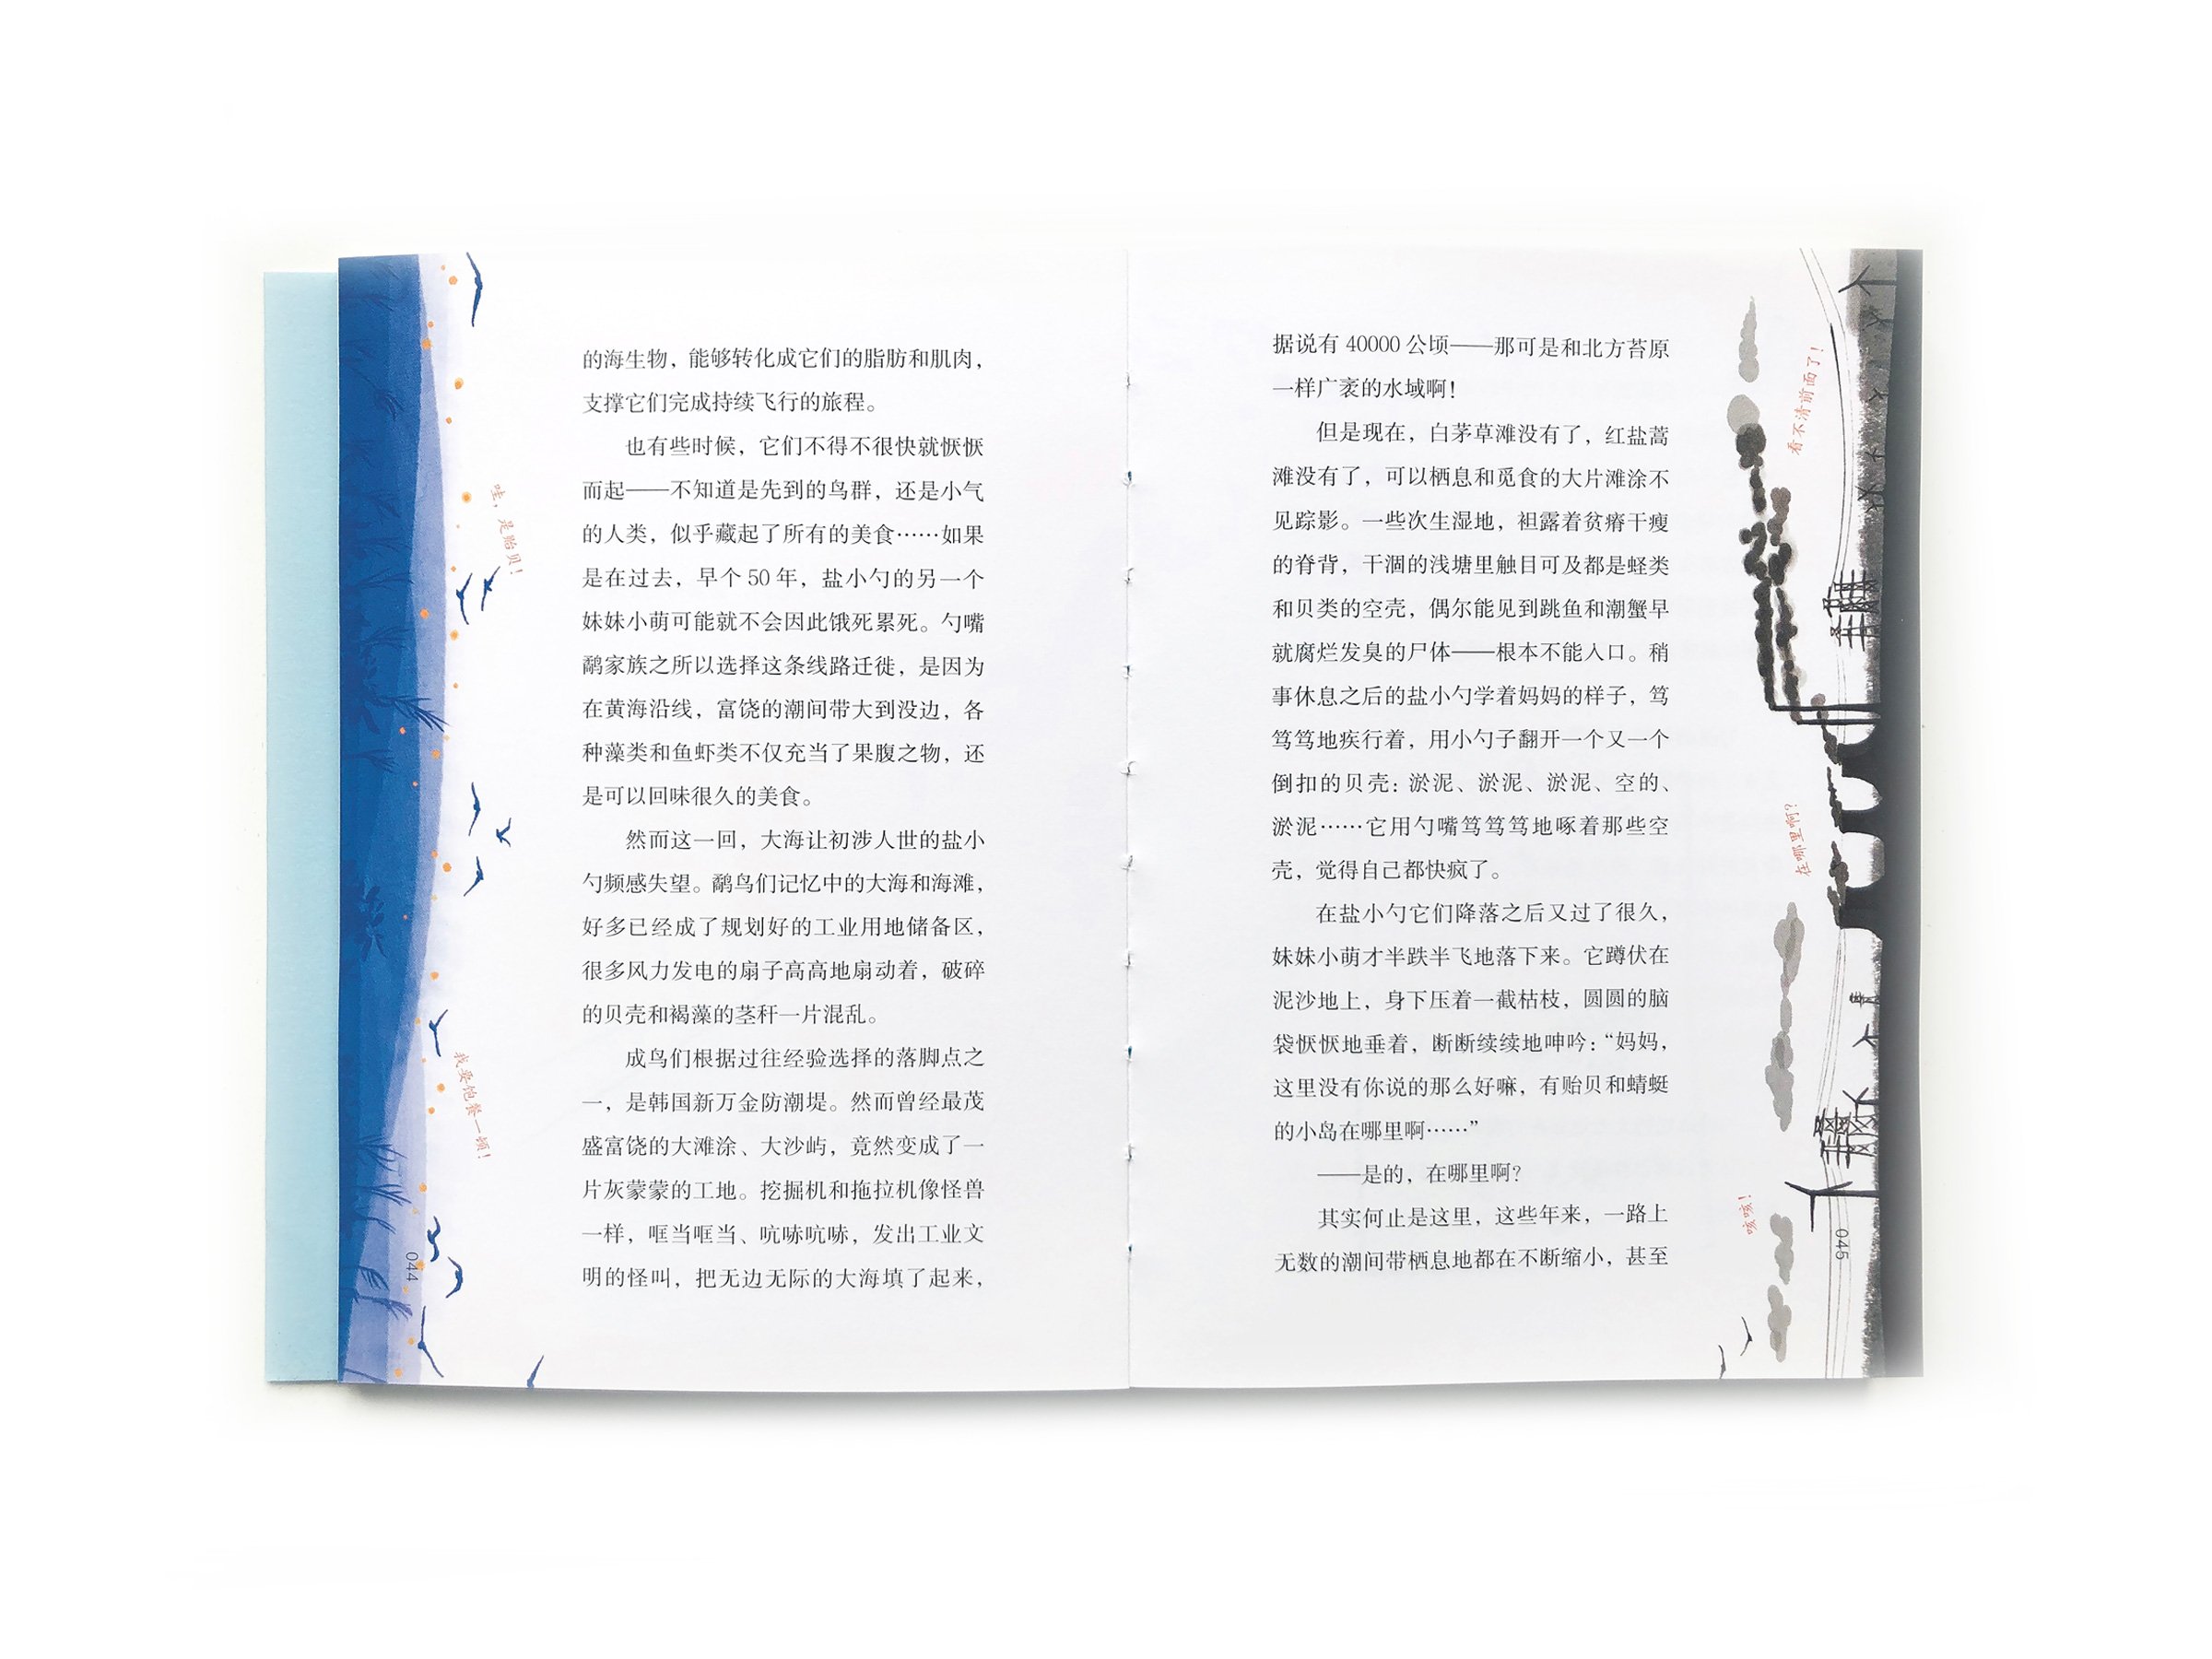 的海生物，能够转化成它们的脂肪和肌肉，
支撑它们完成持续飞行的旅程。
也有些时候，它们不得不很快就恹恹
而起——不知道是先到的鸟群，还是小气
的人类，似乎藏起了所有的美食……如果
是在过去，早个 50 年，盐小勺的另一个
妹妹小萌可能就不会因此饿死累死。勺嘴
鹬家族之所以选择这条线路迁徙，是因为
在黄海沿线，富饶的潮间带大到没边，各
种藻类和鱼虾类不仅充当了果腹之物，还
是可以回味很久的美食。
然而这一回，大海让初涉人世的盐小
勺频感失望。鹬鸟们记忆中的大海和海滩，
好多已经成了规划好的工业用地储备区，
很多风力发电的扇子高高地扇动着，破碎
的贝壳和褐藻的茎秆一片混乱。
成鸟们根据过往经验选择的落脚点之
一，是韩国新万金防潮堤。然而曾经最茂
盛富饶的大滩涂、大沙屿，竟然变成了一
片灰蒙蒙的工地。挖掘机和拖拉机像怪兽
一样，哐当哐当、吭哧吭哧，发出工业文
明的怪叫，把无边无际的大海填了起来，
哇，是贻贝！
我要饱餐一顿！
044
据说有 40000 公顷——那可是和北方苔原
一样广袤的水域啊！
但是现在，白茅草滩没有了，红盐蒿
滩没有了，可以栖息和觅食的大片滩涂不
见踪影。一些次生湿地，袒露着贫瘠干瘦
的脊背，干涸的浅塘里触目可及都是蛏类
和贝类的空壳，偶尔能见到跳鱼和潮蟹早
就腐烂发臭的尸体——根本不能入口。稍
事休息之后的盐小勺学着妈妈的样子，笃
笃笃地疾行着，用小勺子翻开一个又一个
倒扣的贝壳：淤泥、淤泥、淤泥、空的、
淤泥……它用勺嘴笃笃笃地啄着那些空
壳，觉得自己都快疯了。
在盐小勺它们降落之后又过了很久，
妹妹小萌才半跌半飞地落下来。它蹲伏在
泥沙地上，身下压着一截枯枝，圆圆的脑
袋恹恹地垂着，断断续续地呻吟：“妈妈，
这里没有你说的那么好嘛，有贻贝和蜻蜓
的小岛在哪里啊……”
——是的，在哪里啊？
其实何止是这里，这些年来，一路上
无数的潮间带栖息地都在不断缩小，甚至
看不清前面了！
在哪里啊？
咳咳！
045